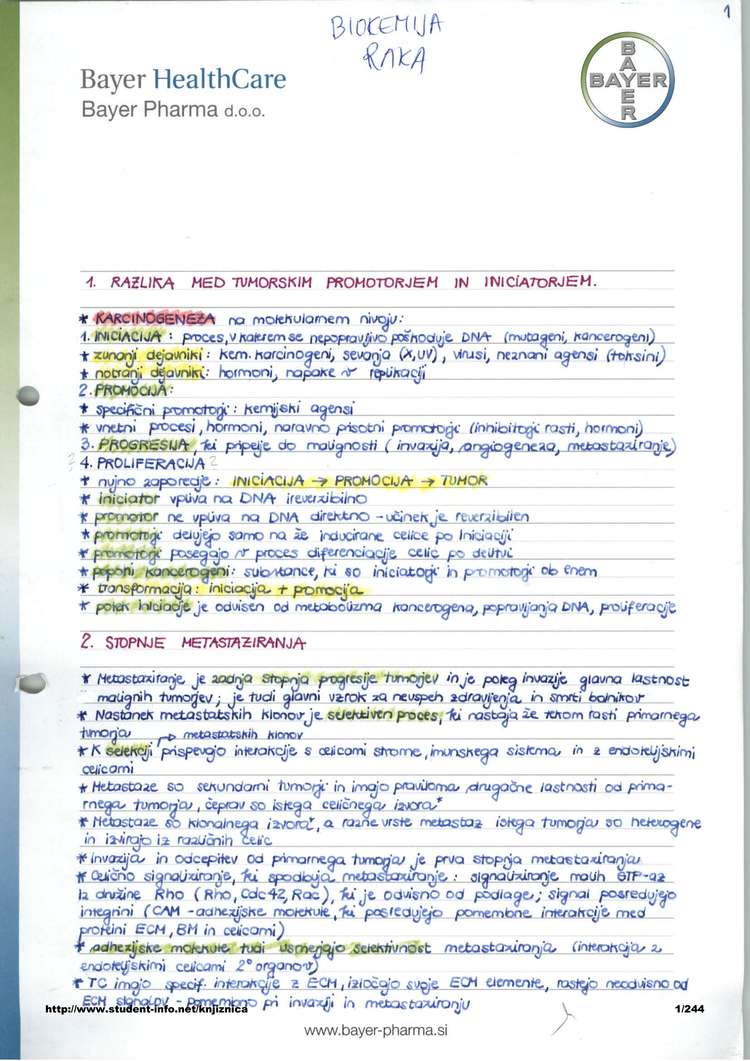 1
BIOKEMIJA
RAKA
Bayer HealthCare
Bayer Pharma d.o.o.
BAYER
BAYER
1. RAZLIKA MED TUMORSKIM PROMOTORJEM IN INICIATORJEM.
* KARCINOGENEZA na molekularnem nivoju:
1. INICIACIJA : proces, v katerem se nepopravljivo poškoduje DNA (mutageni, kancerogeni)
* zunanji dejavniki: kem. karcinogeni, sevanja (X,UV), virusi, neznani agensi (toksini)
* notranji dejavniki: hormoni, napake v replikaciji
2. PROMOCIJA:
* specifični promotorji : kemijski agensi
* vnetni procesi, hormoni, naravno prisotni promotorji (inhibitorji rasti, hormoni)
3. PROGRESIJA, ki pripelje do malignosti (invazija, angiogeneza, metastaziranje)
? 4. PROLIFERACIJA ?
* nujno zaporedje : INICIACIJA → PROMOCIJA → TUMOR
* iniciator vpliva na DNA ireverzibilno
* promotor ne vpliva na DNA direktno - učinek je reverzibilen
* promotorji delujejo samo na že inducirane celice po iniciaciji
* promotorji posegajo v proces diferenciacije celic po delitvi
* popolni kancerogeni: substance, ki so iniciatorji in promotorji ob enem
* transformacija: iniciacija + promocija
* potek iniciacije je odvisen od metabolizma kancerogena, popravljanja DNA, proliferacije
2. STOPNJE METASTAZIRANJA
* Metastaziranje je zadnja stopnja progresije tumorjev in je poleg invazije glavna lastnost
malignih tumorjev; je tudi glavni vzrok za neuspeh zdravljenja in smrti bolnikov
* Nastanek metastatskih klonov je selektiven proces, ki nastaja že tekom rasti primarnega
tumorja → metastatskih klonov
* K selekciji prispevajo interakcije s celicami strome, imunskega sistema in z endotelijskimi
celicami
* Metastaze so sekundarni tumorji in imajo praviloma drugačne lastnosti od prima-
rnega tumorja, čeprav so istega celičnega izvora*
* Metastaze so klonalnega izvora*, a razne vrste metastaz istega tumorja so heterogene
in izvirajo iz različnih celic
* invazija in odcepitev od primarnega tumorja je prva stopnja metastaziranja
* Celično signaliziranje, ki spodbuja metastaziranje : signaliziranje malih GTP-az
iz družine Rho (Rho, Cdc42, Rac), ki je odvisno od podlage; signal posredujejo
integrini (CAM - adhezijske molekule, ki posredujejo pomembne interakcije med
proteini ECM, BM in celicami)
* adhezijske molekule tudi usmerjajo selektivnost metastaziranja (interakcija z
endotelijskimi celicami 2° organov)
* TC imajo specif. interakcije z ECM, izločajo svoje ECM elemente, rastejo neodvisno od
ECM signalov - pomembno pri invaziji in metastaziranju
http://www.student-info.net/knjiznica
1/244
www.bayer-pharma.si